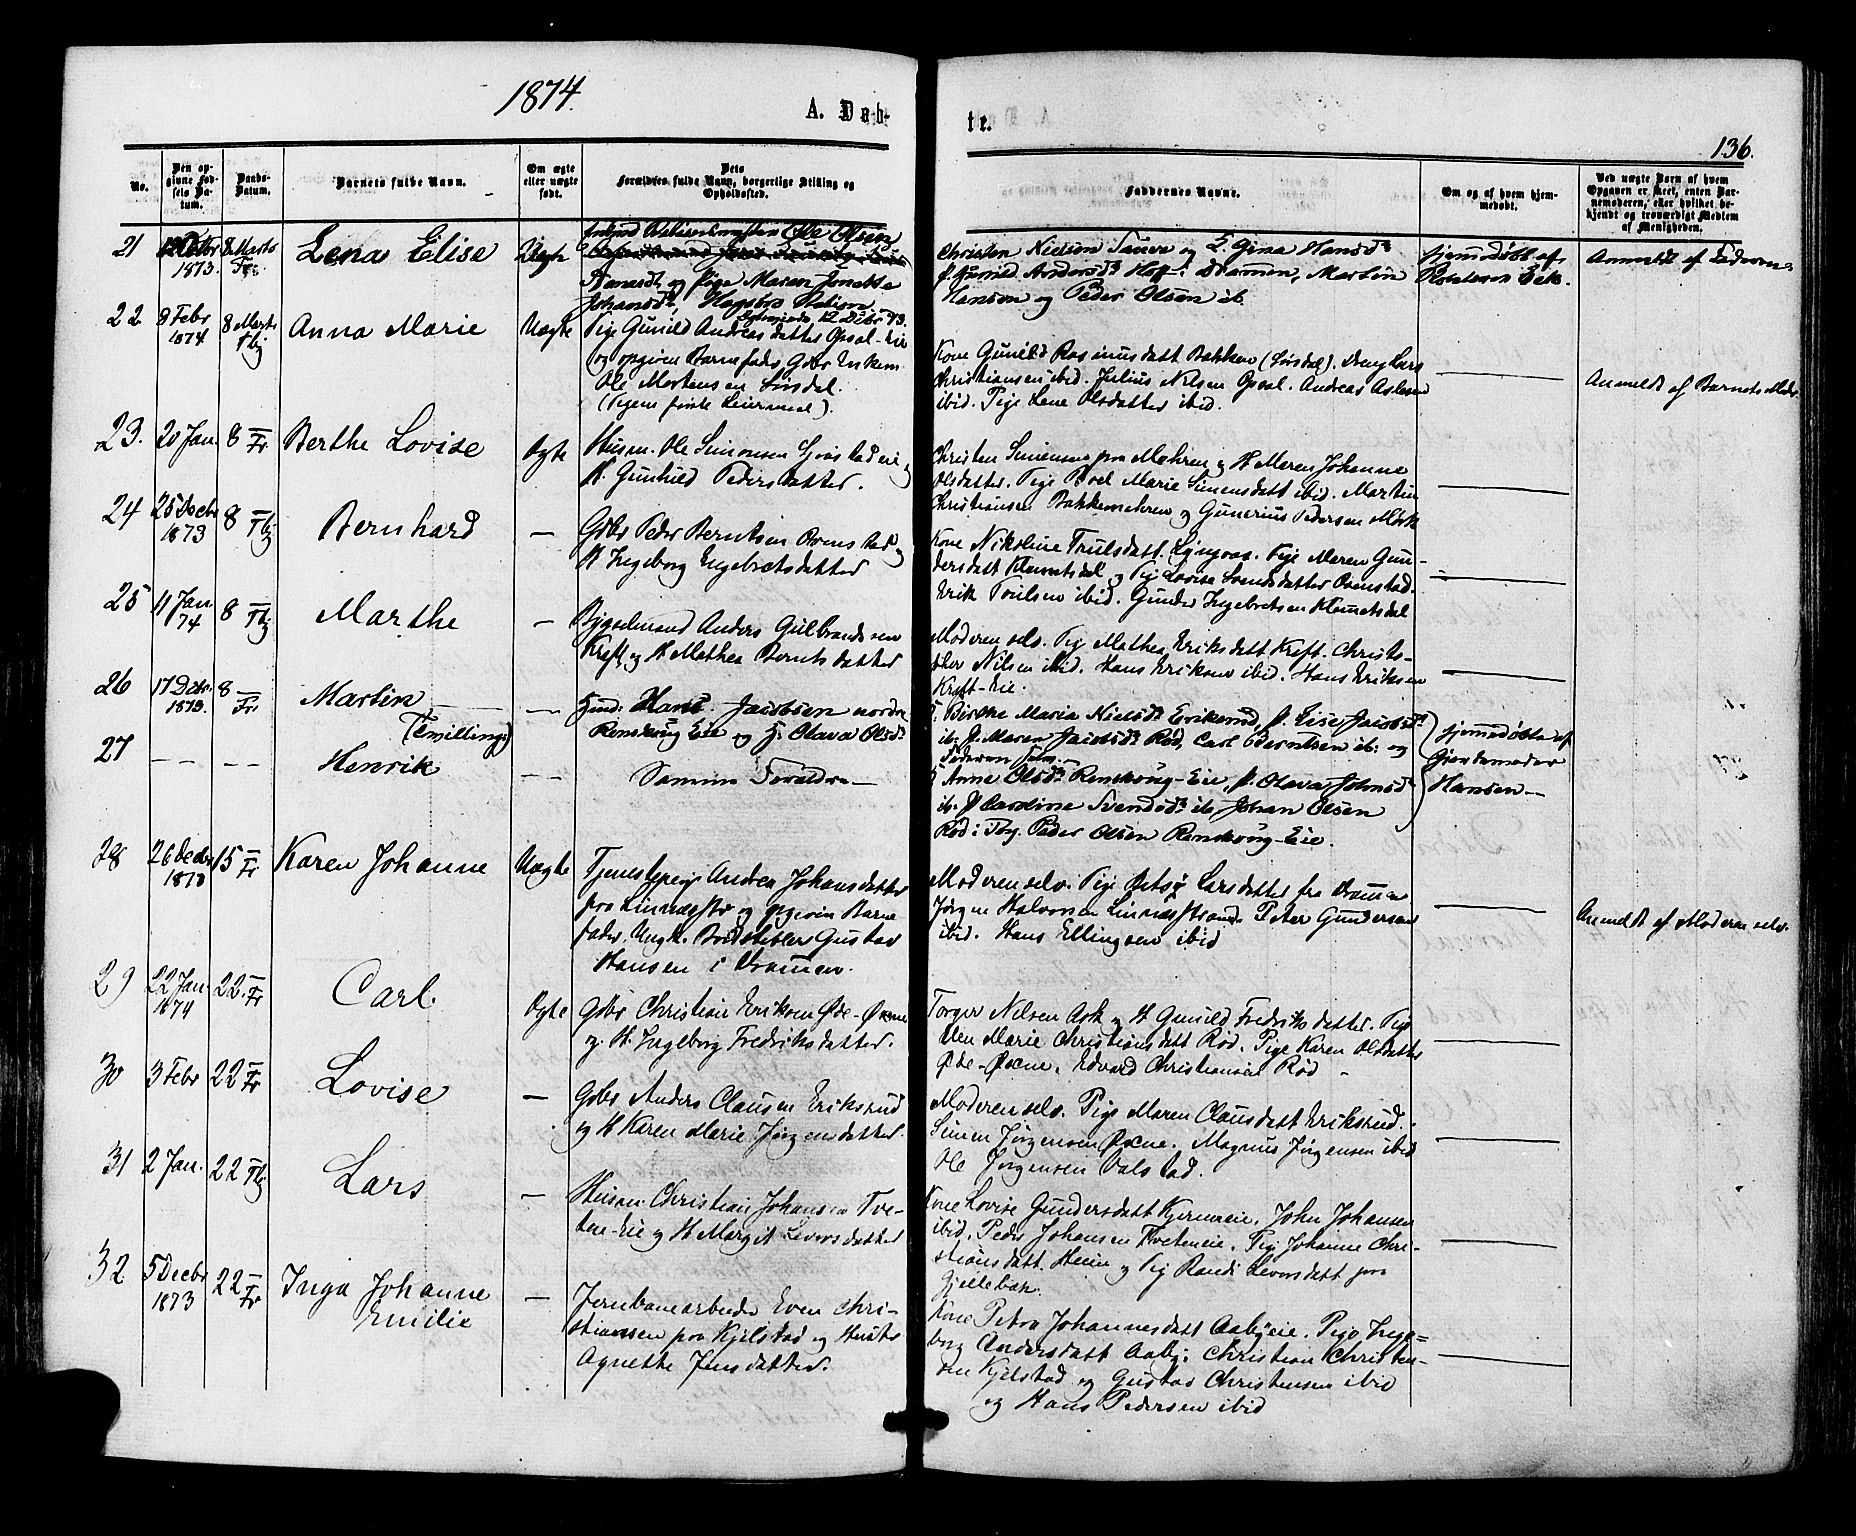 1874.
A. Døb-
te.
136.
No.
Den op-
givne Fød-
sels Da-
tum.
Daabs-
Datum.
Barnets fulde Navn.
Om ægte
eller uægte
født.
Dets
Forældres fulde Navn, borgerlige Stilling og
Opholdssted.
Faddernes Navne.
Om og af hvem hjem-
medøbt.
Ved uægte Barn af hvem
Opgaven er skeet, enten Bar-
nemoderen, eller hvilket be-
kjendt og troværdigt Medlem
af Menigheden.
21 1873. 8 Marts Fr. Lena Elise Uægte
og Pige Maren Jonette
Johansd.
Christen Nielsen og E. Gina Hansd.
Drammen, Martin
Hansen og Peder Olsen ib.
hjemmedøbt af
Eek.
Anmeldt af Faderen
22 8 Febr 1874 8 Marts Tbg Anna Marie Uægte
Pige Gunild Andreasdatter Opsal-eie
og opgiven Barnefader Gbr Enkem.
Ole Mortensen Sørsdal.
(Pigens første Leiermaal).
Kone Gunild Rasmusdatt Bakken (Sørsdal). Dreng Lars
Christiansen ibid. Julius Nilsen Opsal. Andreas Aslesen
ibid. Pige Lene Olsdatter ibid.
Anmeldt af Barnets Moder.
23. 20 Jan. 8 Fr Berthe Lovise Ægte
Husm. Ole Simonsen eie og
H. Gunhild Pedersdatter.
Christen Simensen fra Mehren og H Maren Johanne
Olsdatter. Pige Boel Marie Simensdatt ibid. Martin
Christiansen Bakkemehren og Gunerius Pedersen Mørk
24 25 Decbr 1873 8 Tbg Bernhard —
Gbr Peder Berntsen Ovenstad og
H Ingeborg Engebretsdatter
Kone Nikoline Trulsdatt. Lyngaas. Pige Maren Gun-
dersdatt Klemetsdal og Pige Lovise Svendsdatter Ovenstad.
Erik Paulsen ibid. Gunder Ingebretsen Klemetsdal
25 11 Jan 74 8 Tbg Marthe —
Bygselmand Anders Gulbrandsen
Kreft og H Mathea Berntsdatter
Moderen selv. Pige Mathea Eriksdatt Kreft. Christo-
pher Nilsen ibid. Hans Eriksen ibid. Hans Eriksen
Kreft-Eie.
26 17 Dcbr. 1873. 8 Fr. Martin —
(Tvillinger)
Husmd: Hans Jacobsen nordre
Renskoug Eie og H. Olava Olsd.
K. Birthe Maria Nielsd. Erikerud, P. Lise Jacobsd.
ib. P. Maren Jacobsd. Rød, Carl Berntsen ib. og
Faderen selv.
hjemmedøbte af
Gjordemoder
Hansen —
27 — — — — Henrik — —
Samme Forældre —
K Anne Olsd. Renskoug-Eie, P. Olava Johnsd.
ib. P Caroline Svendsd. ib. Johan Olsen
Rød i Tbg. Peder Olsen Renskoug-Eie.
28 26 Decbr 1873 15 Fr Karen Johanne Uægte
Tjenestepige Andrea Johansdatter
fra Linnæsstr. og opgiven Barne
fader, Ungk. Gustav
Hansen i Drammen.
Moderen selv. Pige Betsy Larsdatter fra Drammen
Jørgen Halvorsen Linnæsstrand. Peter Gundersen
ibid. Hans Ellingsen ibid
Anmeldt af Moderen selv.
29 22 Jan. 1874 22. Fr Carl. Ægte
Gbr Christian Eriksen Øde-Øxne
og H. Ingeborg Fredriksdatter.
Torger Nilsen Ask og H Gunild Fredriksdatter. Pige
Marie Christiansdatt Rød. Pige Karen Olsdatter
Øde-Øxne. Edvard Christiansen Rød
30 3 Febr 22 Fr Lovise —
Gbr Anders Clausen Eriksrud
og H Karen Marie Jørgensdatter.
Moderen selv. Pige Maren Clausdatt Eriksrud.
Simen Jørgensen Øxne. Magnus Jørgensen ibid
Ole Jørgensen Valstad.
31 2 Jan. 22 Tbg Lars —
Husm. Christian Johansen Tve-
ten-Eie og H Margit Leversdatter
Kone Lovise Gundersdatt Kjerneeie. John Johansen
ibid, Peder Johansen Tveteneie. Pige Johanne Chri-
stiansdatt. Heim og Pige Randi Leversdatt fra
Gjellebæk.
32 5 Decbr 1873 22 Fr Inga Johanne
Emilie —
Jernbanearbeider Even Chri-
stiansen fra Kjelstad og Hustr.
Agnette Jensdatter.
Kone Petra Johannesdatt Aabyeie. Pige Inge-
borg Andersdatt Aaby. Christian Christen-
sen Kjelstad og Gustav Christensen ibid
og Hans Pedersen ibid